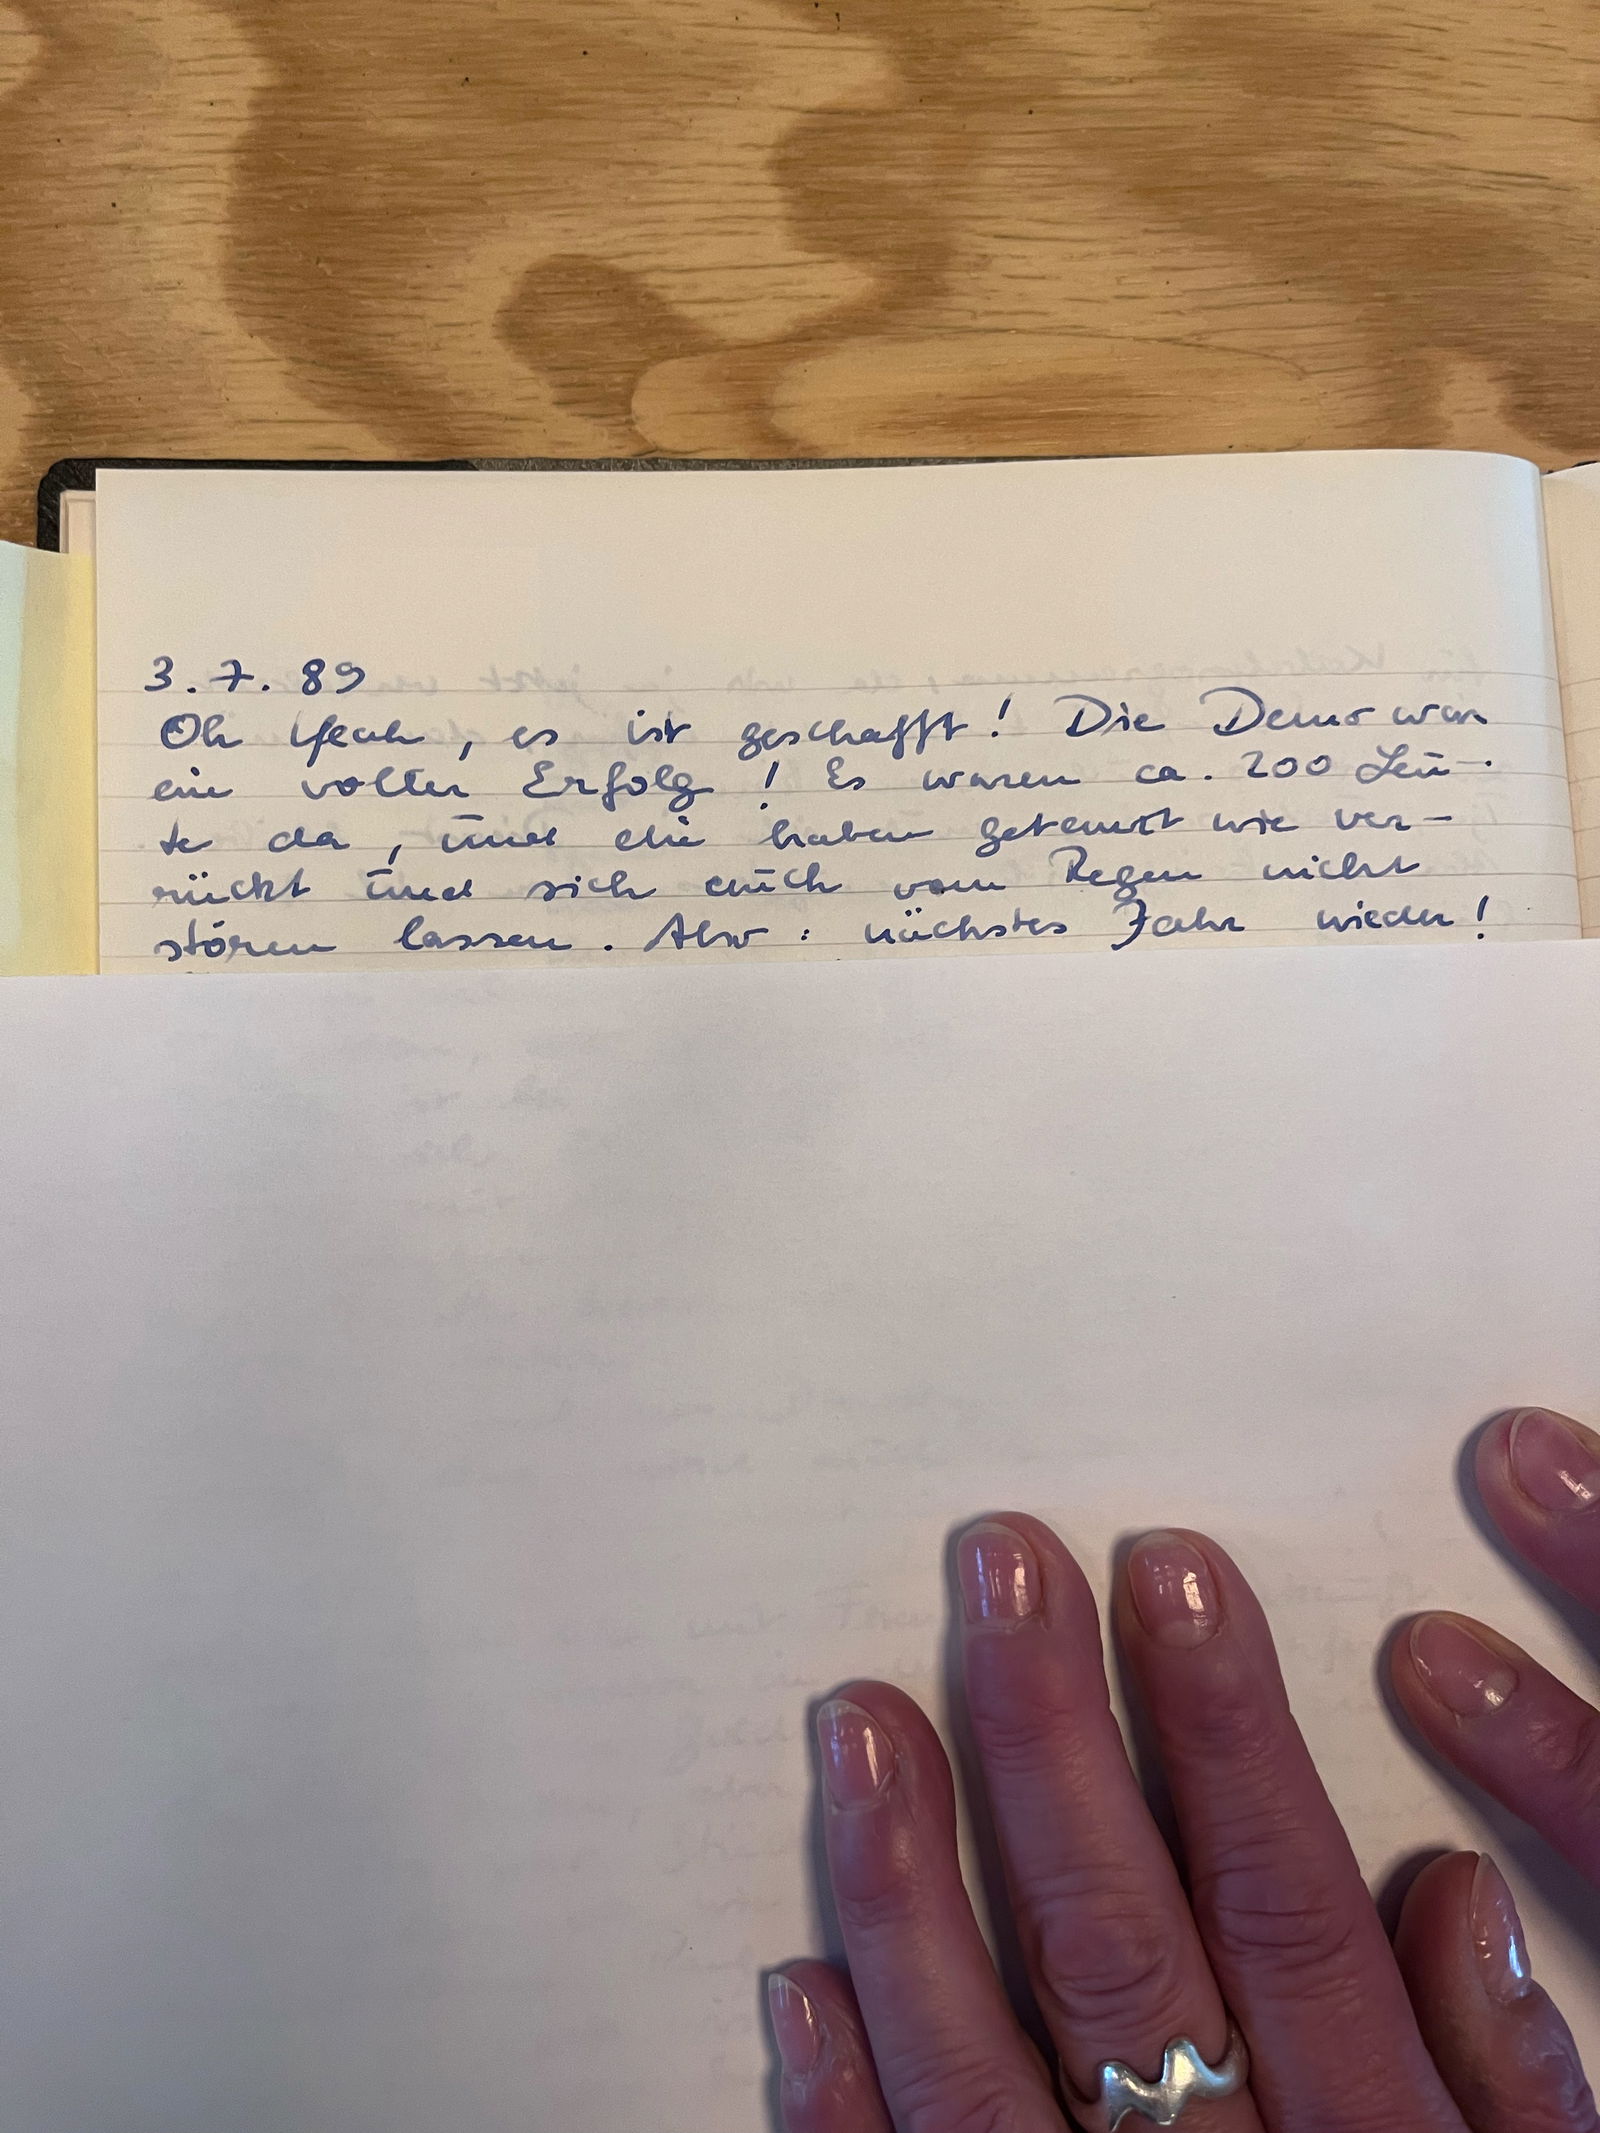 3.7.89
Oh Yeah, es ist geschafft! Die Demo war
ein voller Erfolg! Es waren ca. 200 Leu-
te da, und die haben getanzt wie ver-
rückt und sich auch vom Regen nicht
stören lassen. Also: nächstes Jahr wieder!